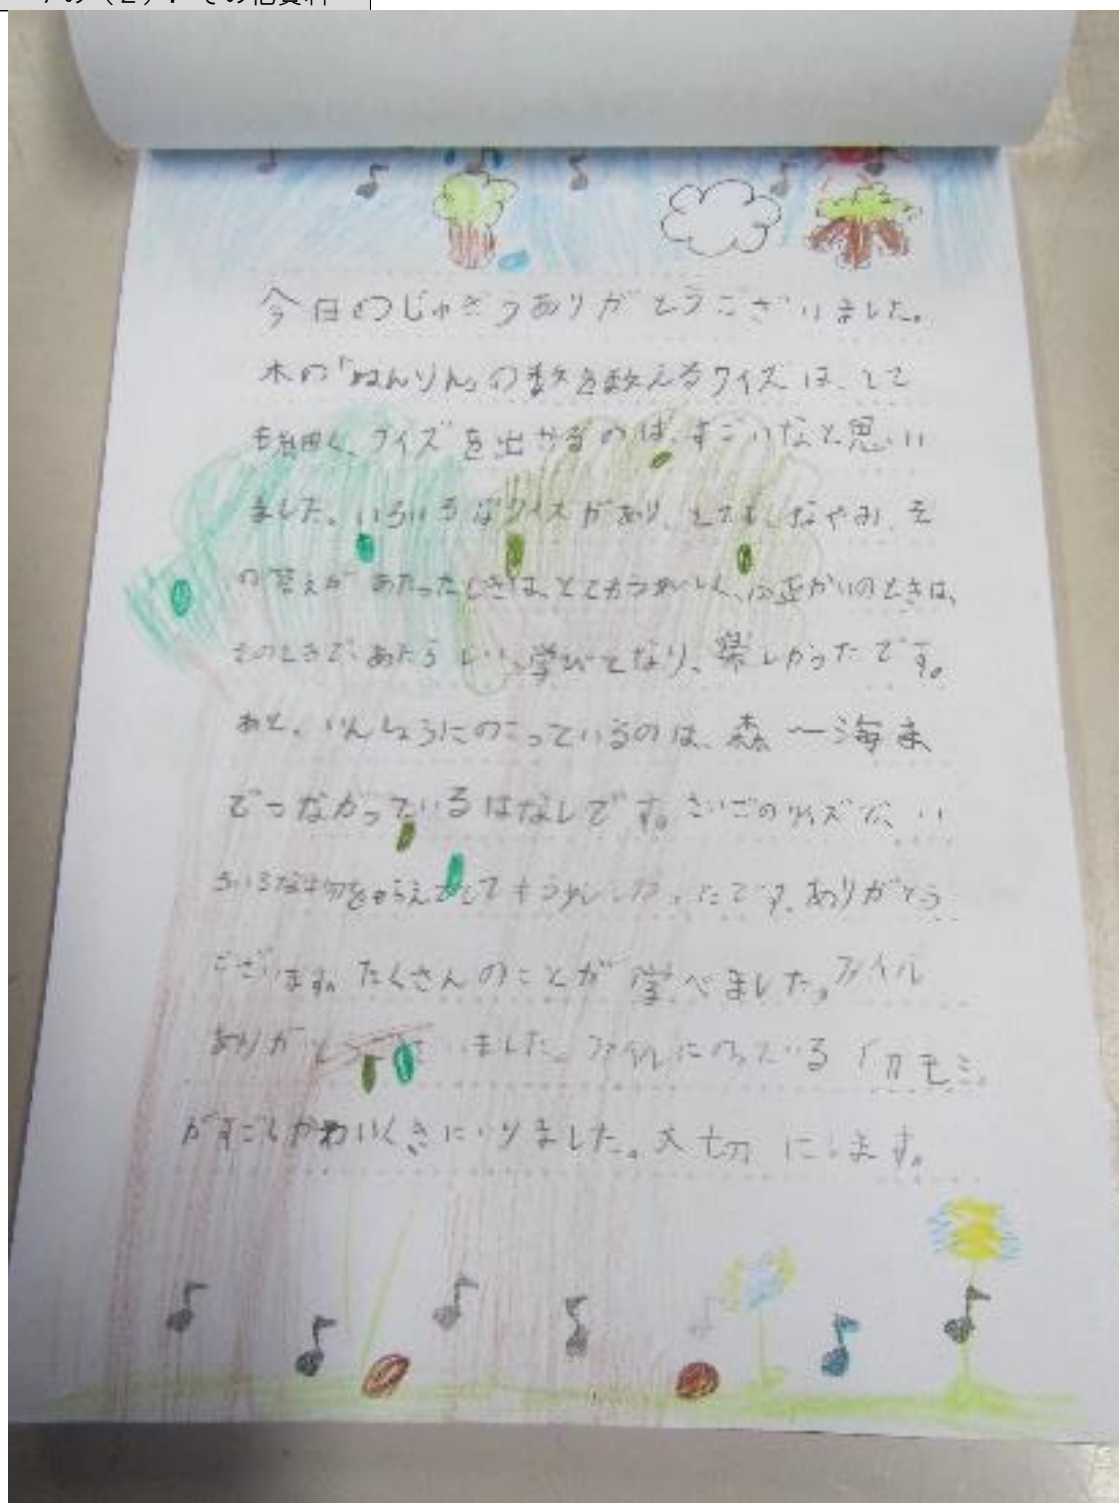 (2). その他資料
今日のじゅぎょうありがとうございました。
木の「ねんりん」の数を数えるクイズは、とて
も細く、クイズを出せるのは、すごいなと思い
ました。いろいろなクイズがあり、とてもなやみ、そ
の答えがあたったときは、とてもうれしく、不正かいのときは、
そのところで、あたらしい、学びとなり、楽しかったです。
あと、いんしょうにのこっているのは、森〜海ま
でつながっているはなしです。さいごのクイズで、い
ろいろな物をもらえてとてもうれしかったです。ありがとう
ございます。たくさんのことが学べました。ファイル
ありがとうございました。ファイルにのっている「カモシ
がすごくかわいくきにいりました。大切にします。